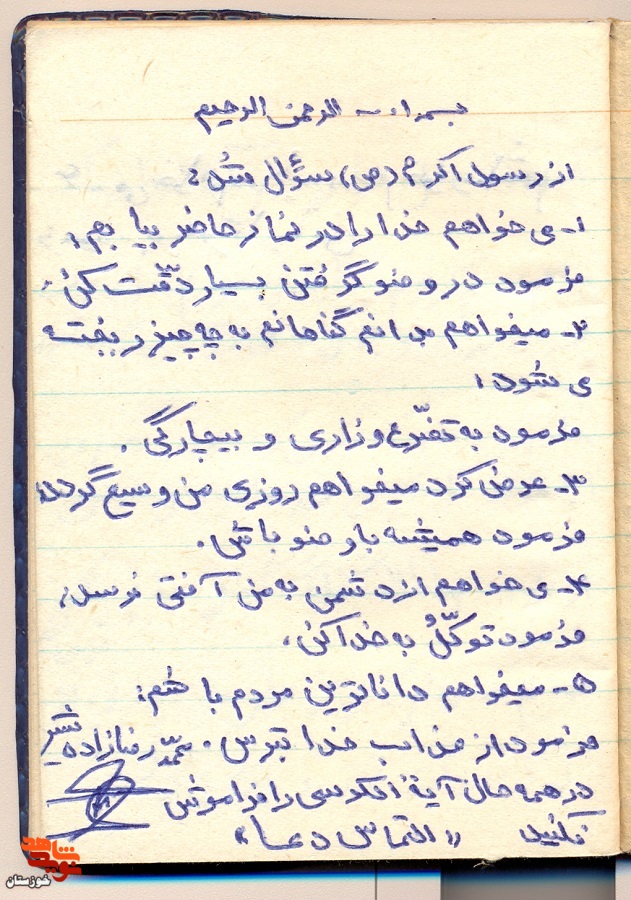 بسم الله الرحمن الرحیم
از رسول اکرم (ص) سؤال شد:
۱- می خواهم خدا را در نماز حاضر بیابم،
فرمود در وضو گرفتن بسیار دقّت کن.
۲- میخواهم بدانم گناهانم به چه چیز ریخته
می شود؛
فرمود به تضرّع و زاری و بیچارگی.
۳- عرض کرد میخواهم روزی من وسیع گردد؛
فرمود همیشه با وضو باش.
۴- می خواهم از دشمن به من آفتی نرسد؛
فرمود توکّلُ به خدا کن،
۵- میخواهم داناترین مردم باشم؛
فرمود از عذاب خدا بترس. محمّد رضازاده
در همه حال آیة الکرسی را فراموش
نکنید «التماس دعا»
شاهد
نوید
خوزستان